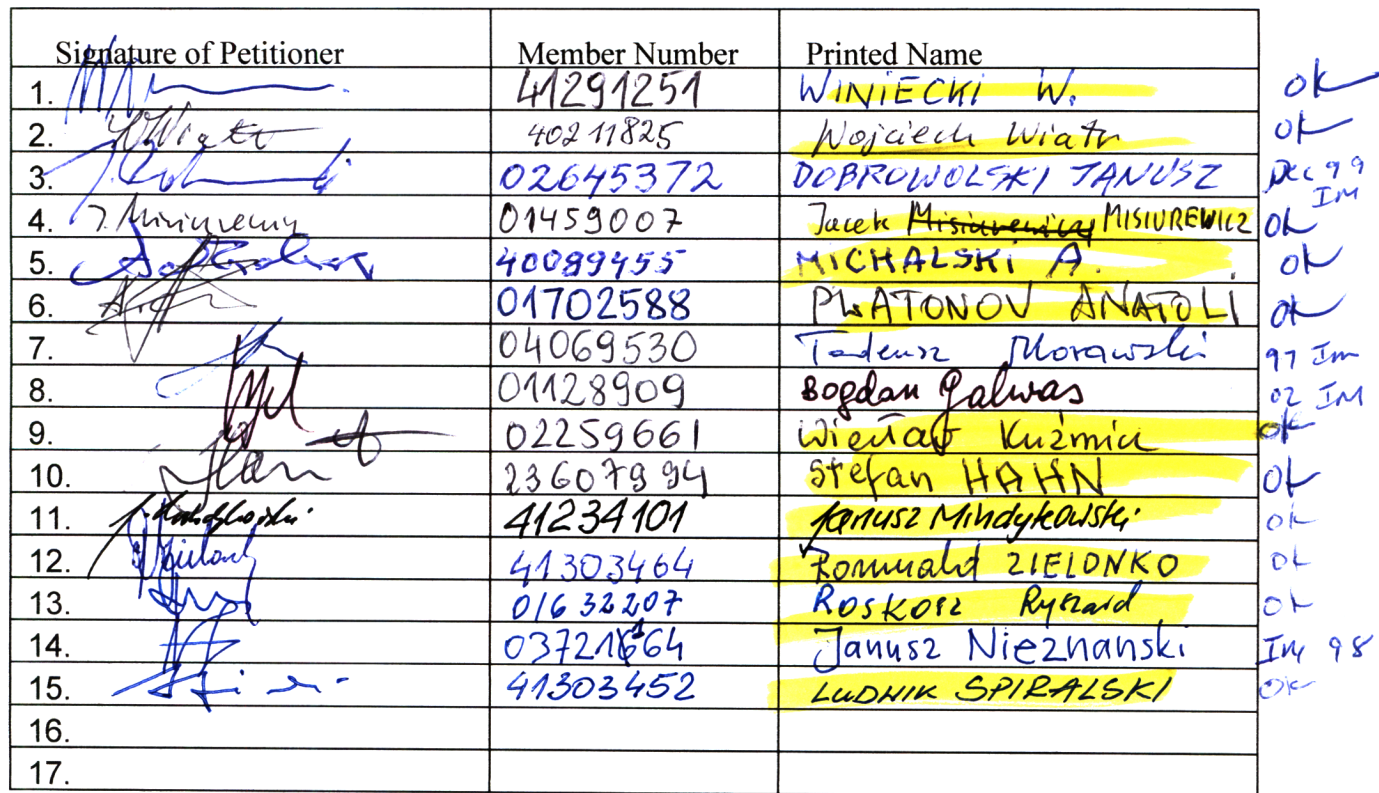 Signature of Petitioner Member Number Printed Name
1. 41291251 WINIECKI W. OK
2. W Wiatr 40211825 Wojciech Wiatr OK
3. 02645372 DOBROWOLSKI JANUSZ Dec 99 IM
4. J. Misiurewicz 01459007 Jacek Misiurewicz MISIUREWICZ OK
5. 40099455 MICHALSKI A. OK
6. 01702588 PLATONOV ANATOLI OK
7. 04069530 Tadeusz Morawski 97 Im
8. 01128909 Bogdan Galwas 02 IM
9. 02259661 Wiesław Kuźmicz OK
10. Hahn 23607994 Stefan HAHN OK
11. J. Mindykowski 41234101 Janusz Mindykowski OK
12. 41303464 Romuald ZIELONKO OK
13. 01632207 ROSKOSZ Ryszard OK
14. 03721664 Janusz Nieznanski Im 98
15. 41303452 LUDWIK SPIRALSKI OK
16.
17.